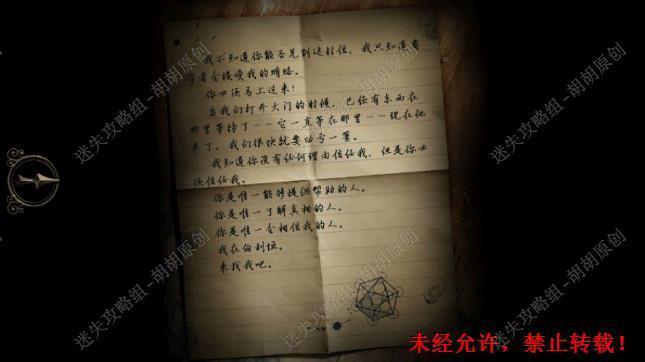 我不知道你能否见到这封信，我只知道有
你必须马上过来！
当我们打开大门的时候，已经有东西在
那里等待了……它一直等在那里……现在他
来了。我们很快就要功亏一篑。
我知道你没有任何理由信任我，但是你必
须信任我。
你是唯一能够提供帮助的人。
你是唯一了解真相的人。
你是唯一会相信我的人。
我在伯利恒。
来找我吧。
迷失攻略组-胡胡原创
迷失攻略组-胡胡原创
迷失攻略组-胡胡原创
迷失攻略组-胡胡原创
迷失攻略组-胡胡原创
迷失攻略组-胡胡原创
未经允许，禁止转载！